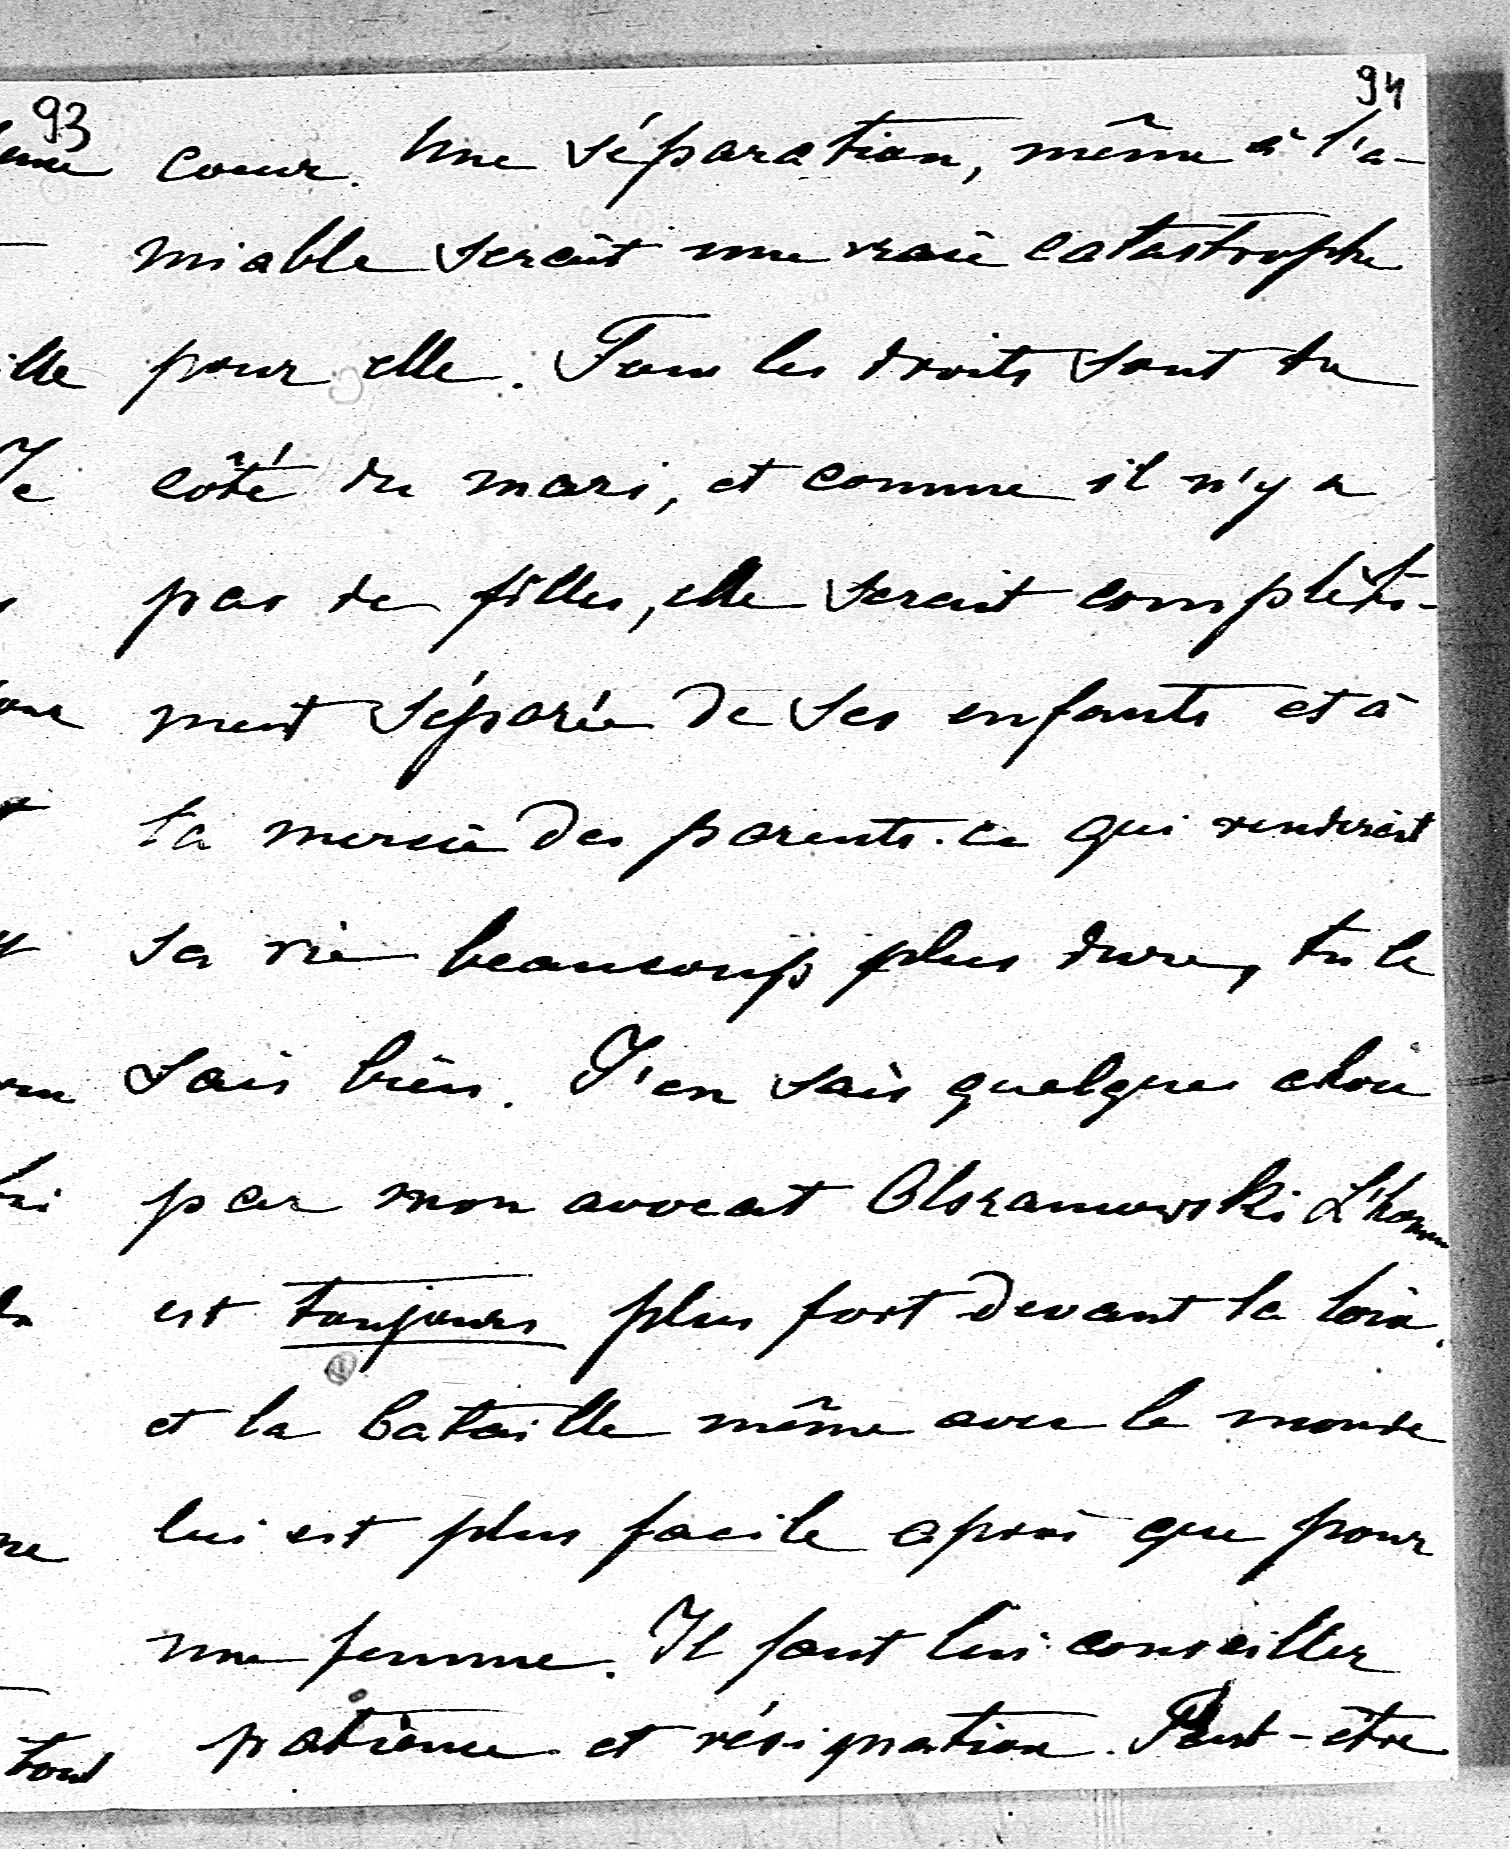 93
94
coeur. Une séparation, même à l'a-
miable serait une vraie catastrophe
pour elle. Tous les droits sont du
côté du mari, et comme il n'y a
pas de filles, elle serait complète-
ment séparée de ses enfants et à
la mercie des parents. ce qui renderait
sa vie beaucoup plus dure, tu le
sais bien. J'en sais quelques chose
par mon avocat L'homme
est toujours plus fort devant la loix.
et la bataille même avec le monde
lui est plus facile après que pour
une femme. Il faut lui conseiller
tout patience et résignation. Peut-être